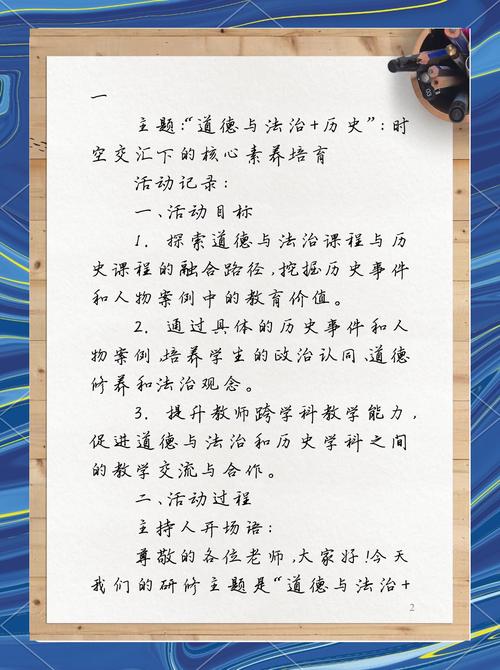 一
主题:“道德与法治+历史”:时
空交汇下的核心素养培育
活动记录:
一、活动目标
1. 探索道德与法治课程与历
史课程的融合路径,挖掘历史事件
和人物案例中的教育价值。
2. 通过具体的历史事件和人
物案例,培养学生的政治认同、道德
修养和法治观念。
3. 提升教师跨学科教学能力,
促进道德与法治和历史学科之间
的教学交流与合作。
二、活动过程
主持人开场语:
尊敬的各位老师,大家好!今天
我们的研修主题是“道德与法治+
2